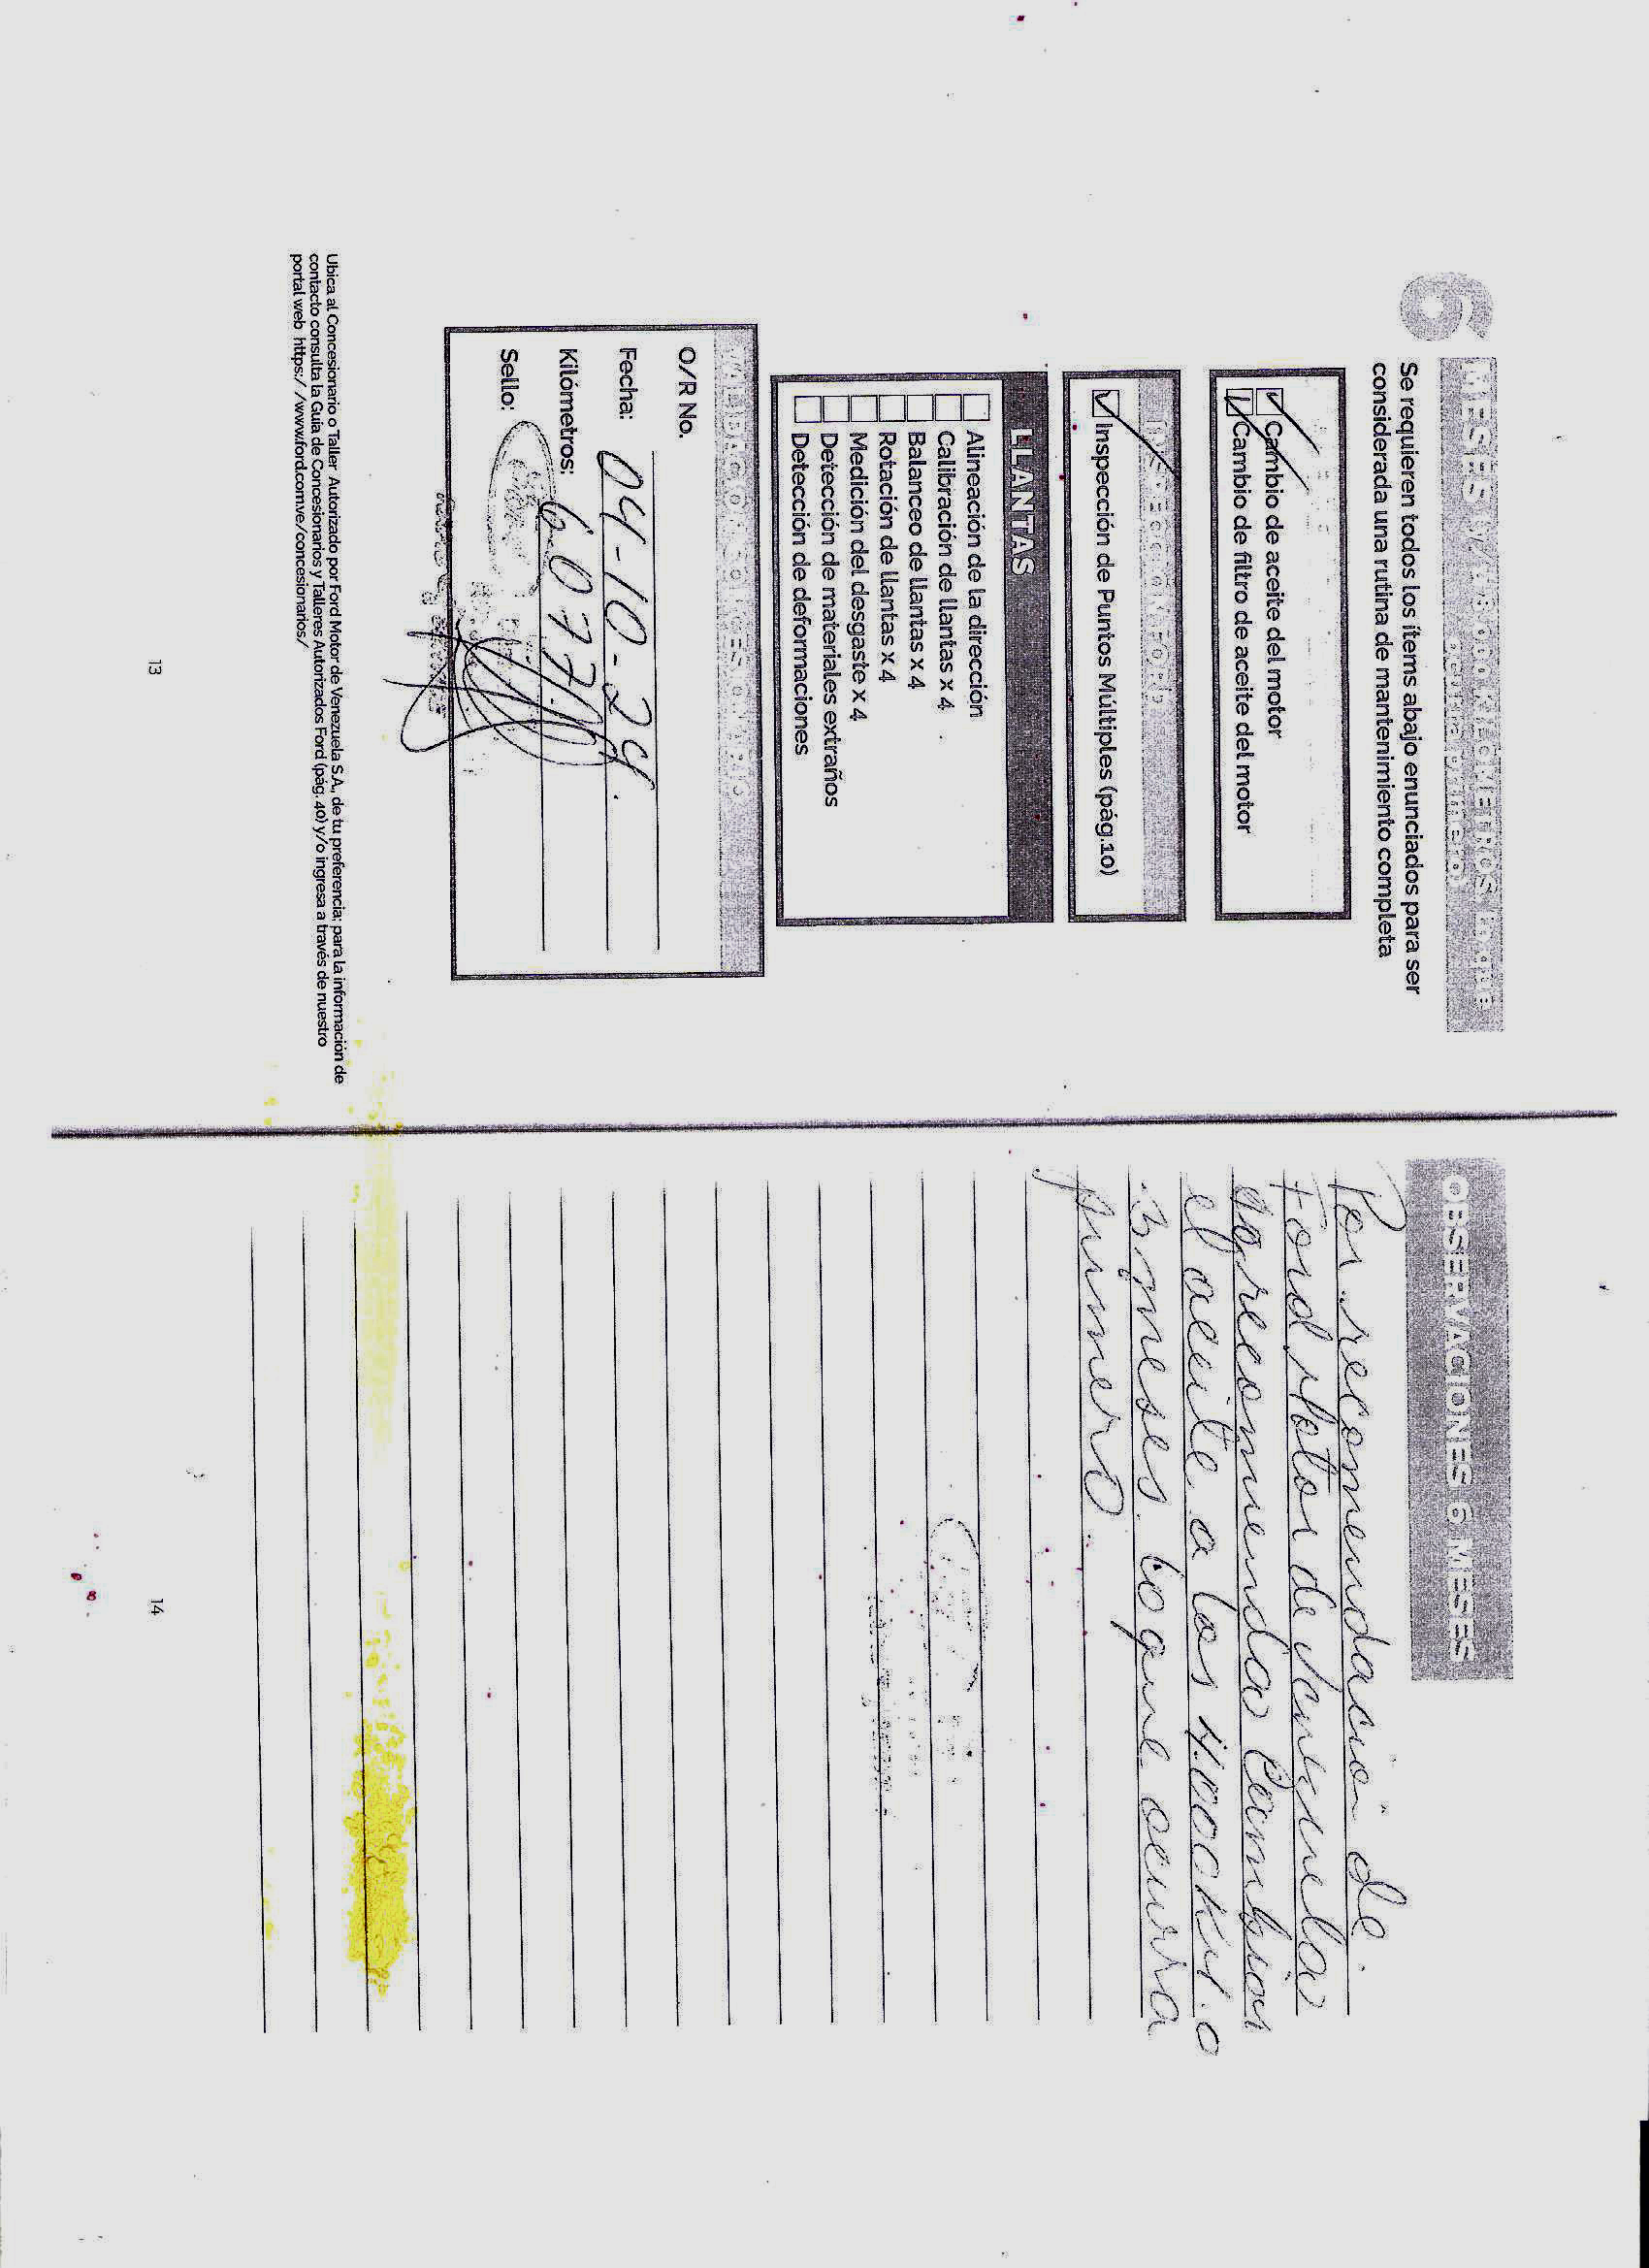 6 MESES
Se requieren todos los ítems abajo enunciados para ser
considerada una rutina de mantenimiento completa
Cambio de aceite del motor
Cambio de filtro de aceite del motor
INSPECCIÓN FORD
Inspección de Puntos Múltiples (pág.10)
LLANTAS
Alineación de la dirección
Calibración de llantas x 4
Balanceo de llantas x 4
Rotación de llantas x 4
Medición del desgaste x 4
Detección de materiales extraños
Detección de deformaciones
VALIDACIÓN CONCESIONARIO
O/R No.
Fecha: 04-10-24.
Kilómetros: 6.077
Sello:
Ubica al Concesionario o Taller Autorizado por Ford Motor de Venezuela S.A, de tu preferencia; para la información de
contacto consulta la Guía de Concesionarios y Talleres Autorizados Ford (pág. 40) y/o ingresa a través de nuestro
portal web https://www.ford.com.ve/concesionarios/
13
OBSERVACIONES 6 MESES
Por recomendación de
Ford Motor de Venezuela
se recomienda Cambiar
el aceite a los 4.000 Km. o
3 meses lo que ocurra
primero.
14